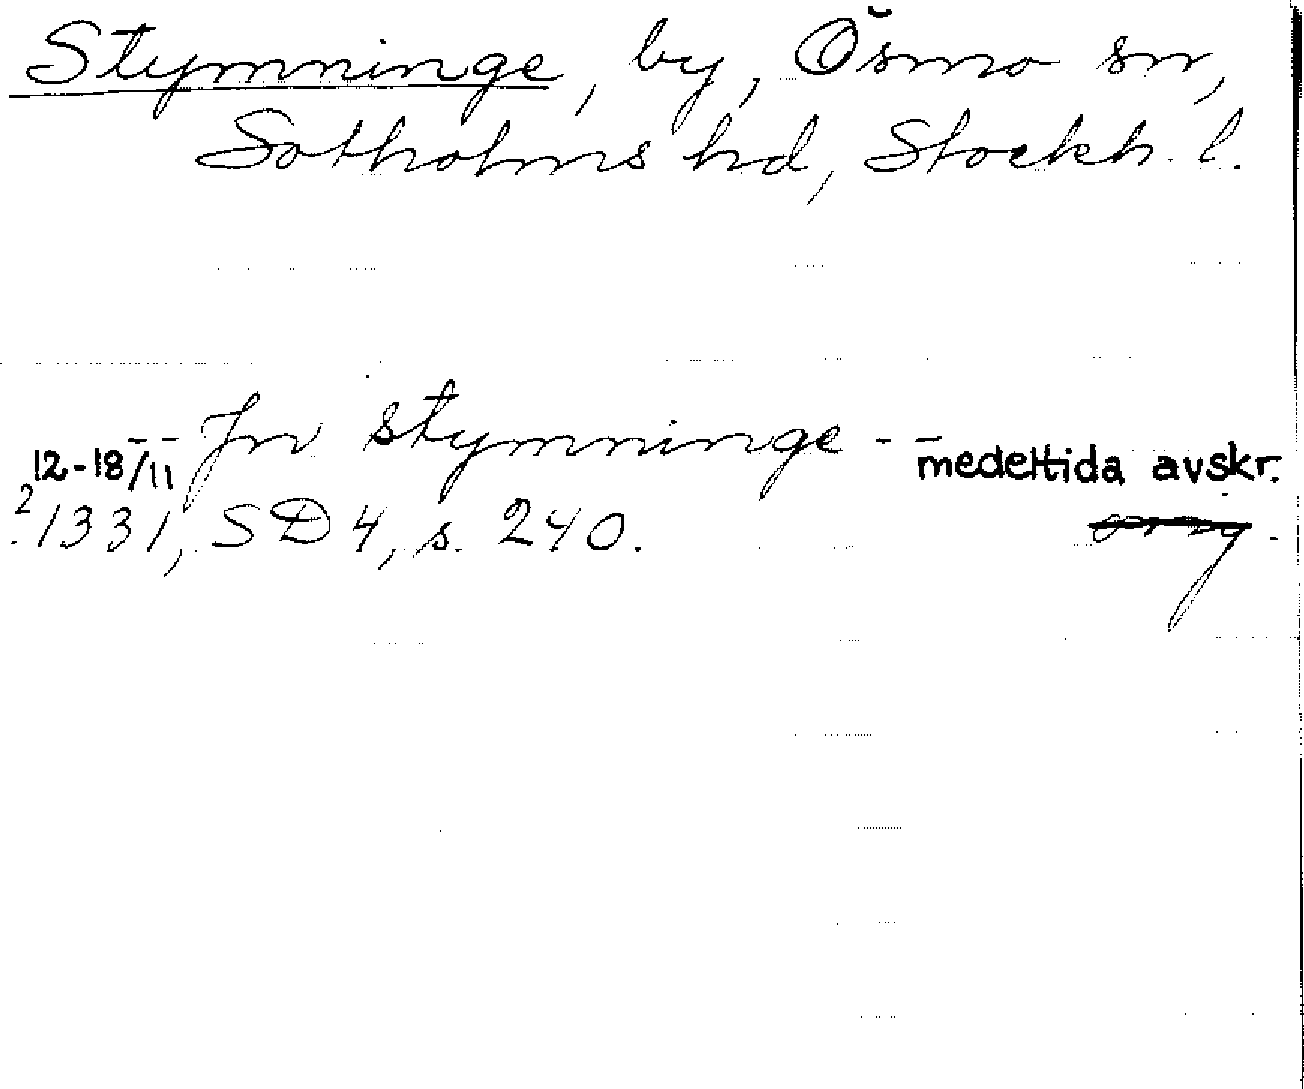 Stymninge, by, Ösmo sn,
Sotholms hd, Stockh. l.
- - Jn stymninge - -
12-18/11 medeltida avskr.
2 1331, SD 4, s. 240. orig.